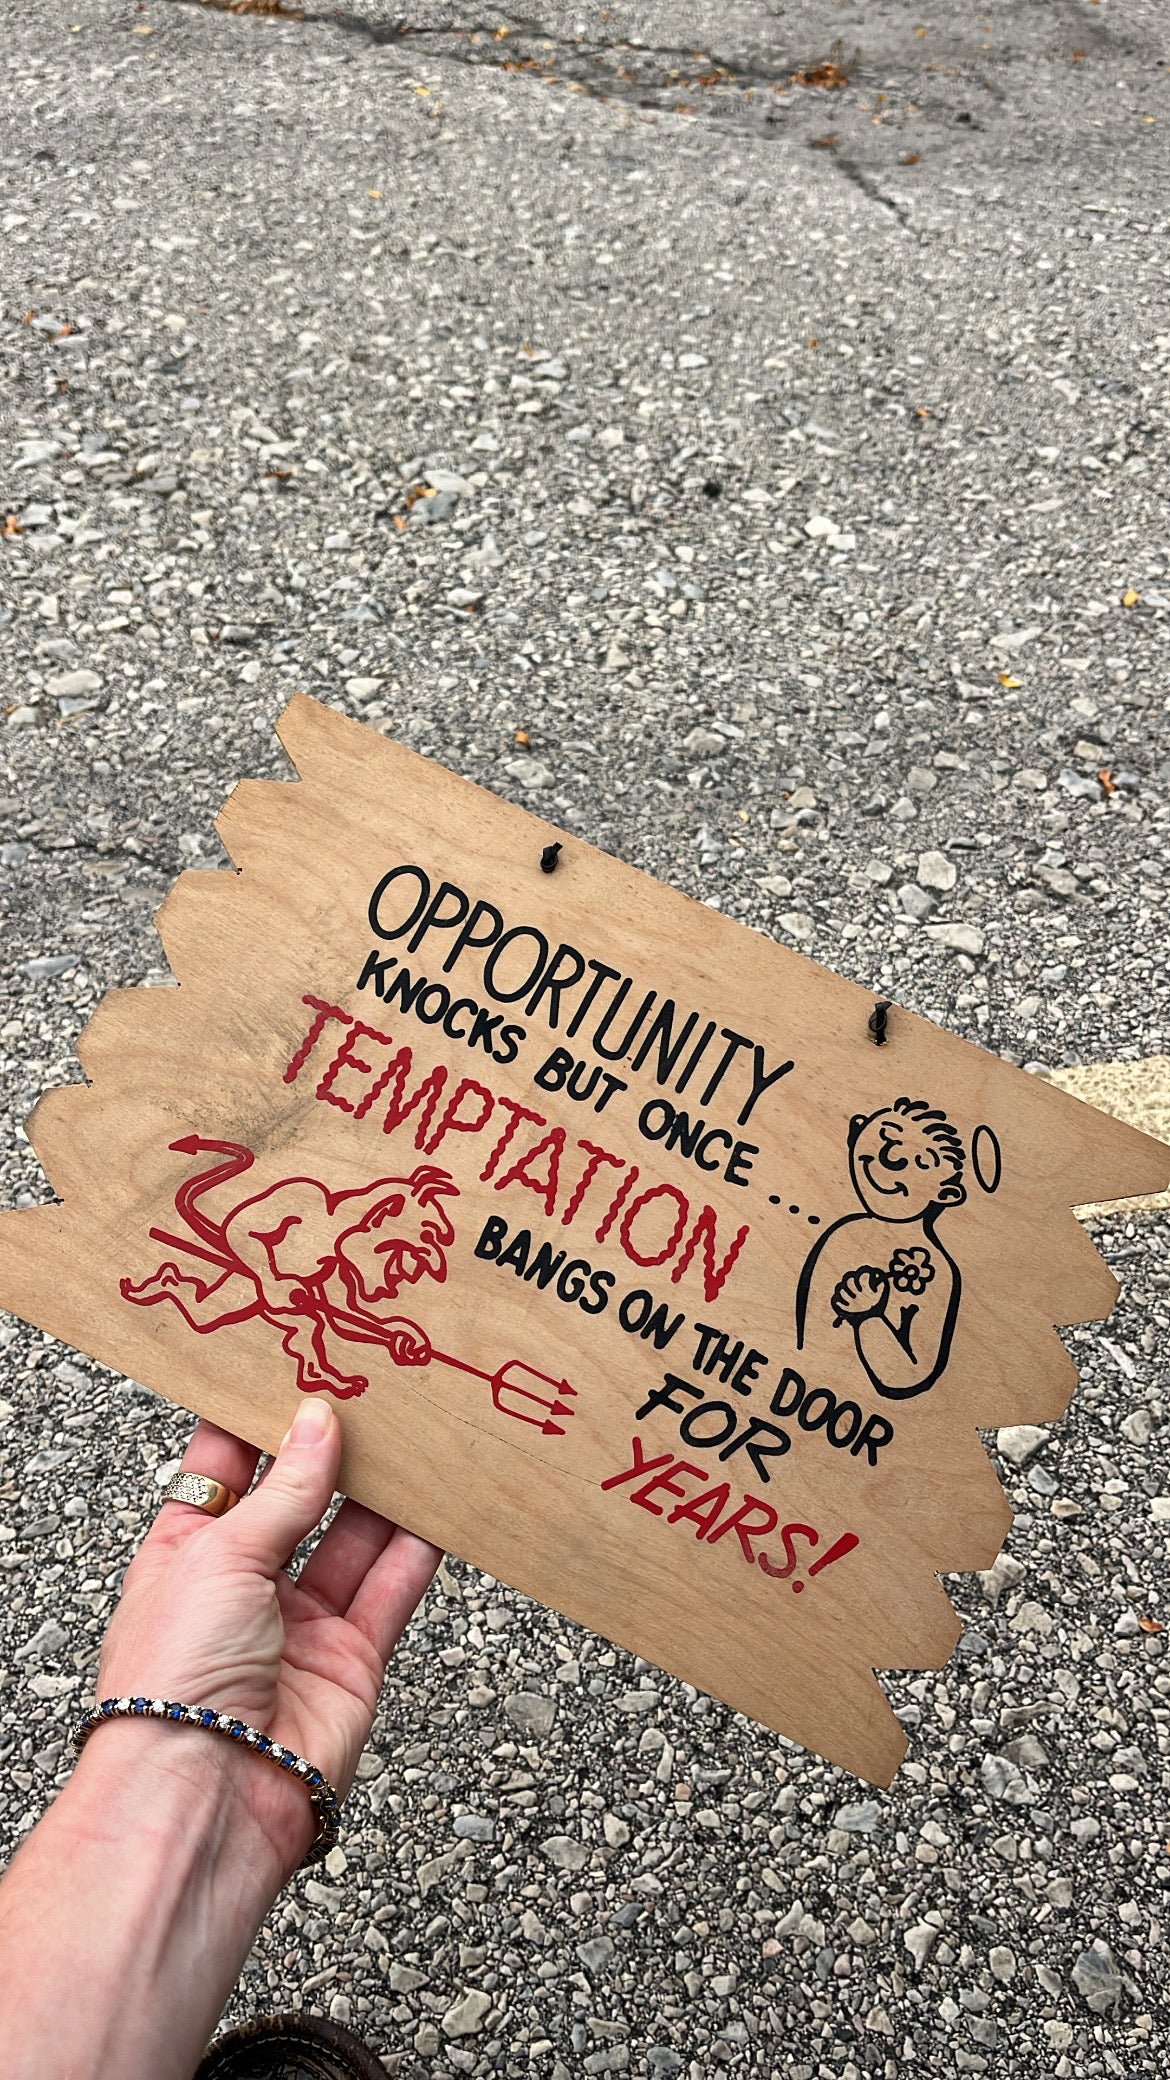 OPPORTUNITY
KNOCKS BUT ONCE...
TEMPTATION
BANGS ON THE DOOR
FOR
YEARS!